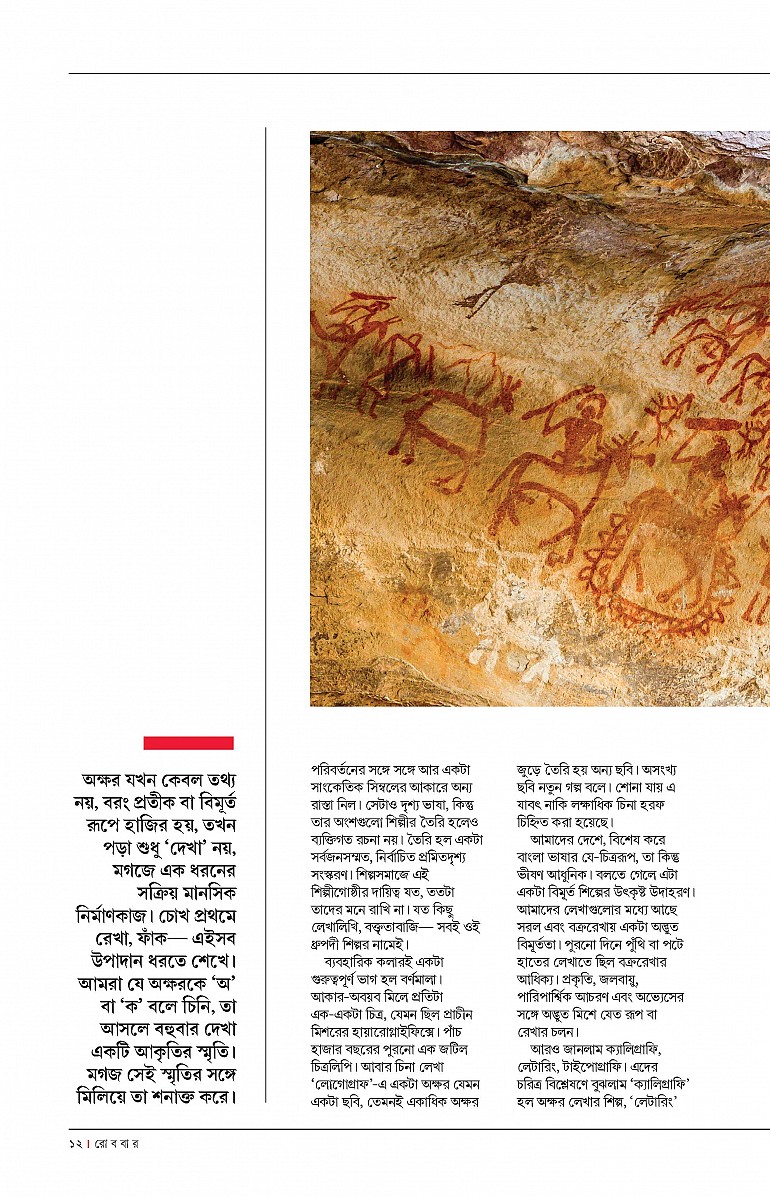 অক্ষর যখন কেবল তথ্য
নয়, বরং প্রতীক বা বিমূর্ত
রূপে হাজির হয়, তখন
পড়া শুধু ‘দেখা’ নয়,
মগজে এক ধরনের
সক্রিয় মানসিক
নির্মাণকাজ। চোখ প্রথমে
রেখা, ফাঁক— এইসব
উপাদান ধরতে শেখে।
আমরা যে অক্ষরকে ‘অ’
বা ‘ক’ বলে চিনি, তা
আসলে বহুবার দেখা
একটি আকৃতির স্মৃতি।
মগজ সেই স্মৃতির সঙ্গে
মিলিয়ে তা শনাক্ত করে।
পরিবর্তনের সঙ্গে সঙ্গে আর একটা
সাংকেতিক সিম্বলের আকারে অন্য
রাস্তা নিল। সেটাও দৃশ্য ভাষা, কিন্তু
তার অংশগুলো শিল্পীর তৈরি হলেও
ব্যক্তিগত রচনা নয়। তৈরি হল একটা
সর্বজনসম্মত, নির্বাচিত প্রমিতদৃশ্য
সংস্করণ। শিল্পসমাজে এই
শিল্পীগোষ্ঠীর দায়িত্ব যত, ততটা
তাদের মনে রাখি না। যত কিছু
লেখালিখি, বক্তৃতাবাজি— সবই ওই
ধ্রুপদী শিল্পর নামেই।
ব্যবহারিক কলারই একটা
গুরুত্বপূর্ণ ভাগ হল বর্ণমালা।
আকার-অবয়ব মিলে প্রতিটা
এক-একটা চিত্র, যেমন ছিল প্রাচীন
মিশরের হায়ারোগ্লাইফিক্সে। পাঁচ
হাজার বছরের পুরনো এক জটিল
চিত্রলিপি। আবার চিনা লেখা
‘লোগোগ্রাফ’-এ একটা অক্ষর যেমন
একটা ছবি, তেমনই একাধিক অক্ষর
জুড়ে তৈরি হয় অন্য ছবি। অসংখ্য
ছবি নতুন গল্প বলে। শোনা যায় এ
যাবৎ নাকি লক্ষাধিক চিনা হরফ
চিহ্নিত করা হয়েছে।
আমাদের দেশে, বিশেষ করে
বাংলা ভাষার যে-চিত্ররূপ, তা কিন্তু
ভীষণ আধুনিক। বলতে গেলে এটা
একটা বিমূর্ত শিল্পের উৎকৃষ্ট উদাহরণ।
আমাদের লেখাগুলোর মধ্যে আছে
সরল এবং বক্ররেখায় একটা অদ্ভুত
বিমূর্ততা। পুরনো দিনে পুঁথি বা পটে
হাতের লেখাতে ছিল বক্ররেখার
আধিক্য। প্রকৃতি, জলবায়ু,
পারিপার্শ্বিক আচরণ এবং অভ্যেসের
সঙ্গে অদ্ভুত মিশে যেত রূপ বা
রেখার চলন।
আরও জানলাম ক্যালিগ্রাফি,
লেটারিং, টাইপোগ্রাফি। এদের
চরিত্র বিশ্লেষণে বুঝলাম ‘ক্যালিগ্রাফি’
হল অক্ষর লেখার শিল্প, ‘লেটারিং’
১২ | রোববার